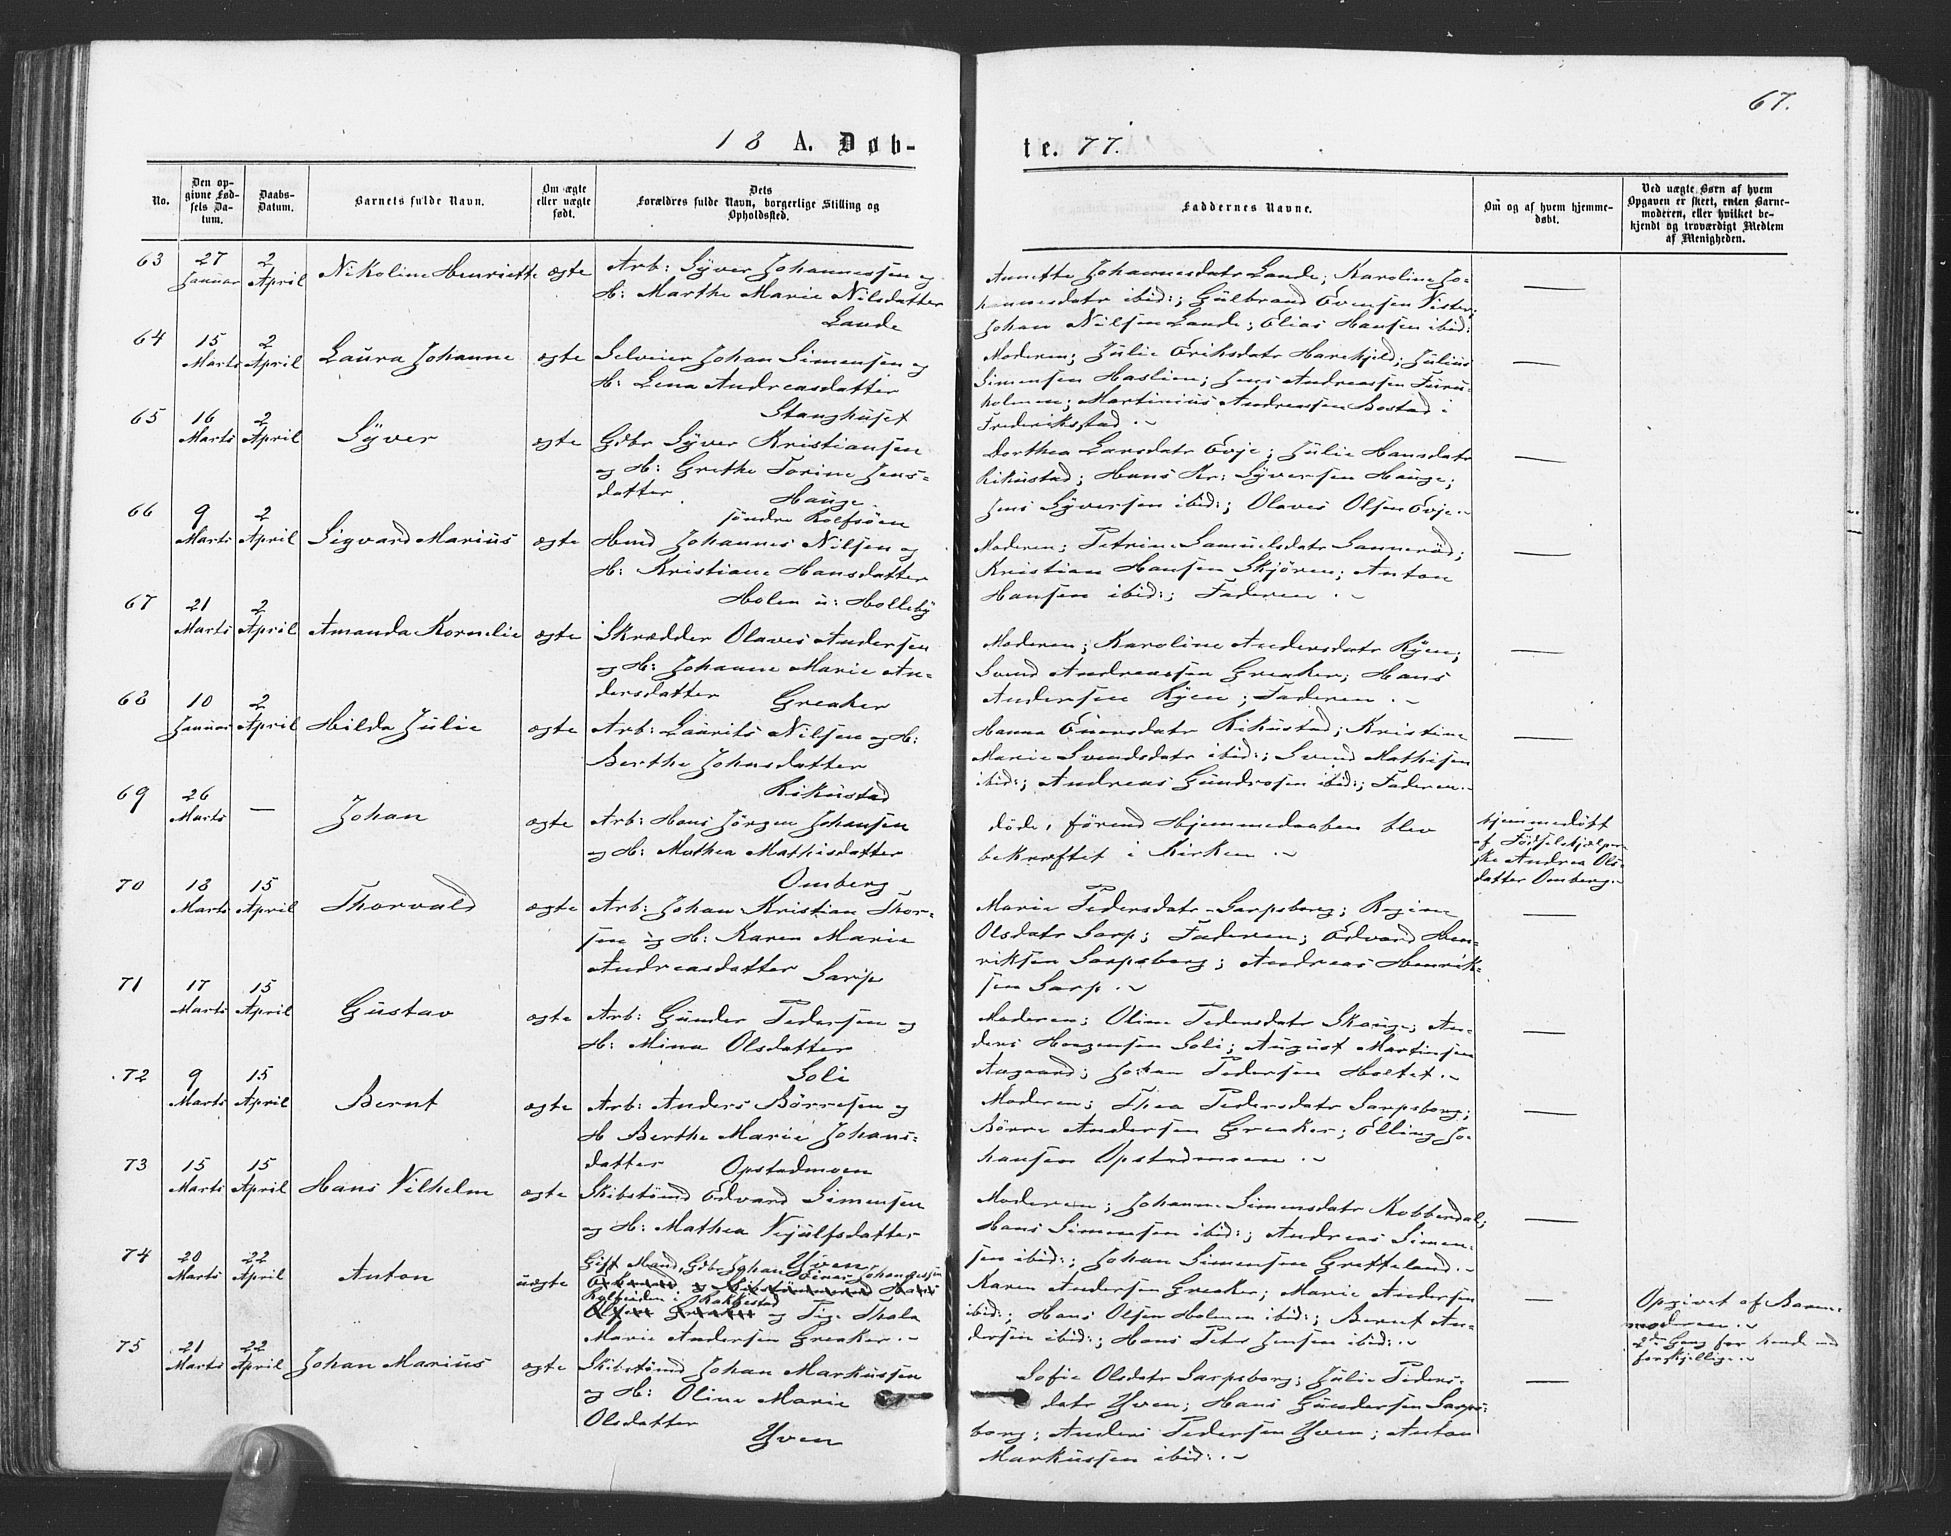 67.
18 A. Døb-
te. 77.
No.
Den op-
givne Fød-
sels Da-
tum.
Daabs-
Datum.
Barnets fulde Navn.
Om ægte
eller uægte
født.
Dets
Forældres fulde Navn, borgerlige Stilling og
Opholdssted.
Faddernes Navne.
Om og af hvem hjemme-
døbt.
Ved uægte Børn af hvem
Opgaven er skeet, enten Barne-
moderen, eller hvilket be-
kjendt og troværdigt Medlem
af Menigheden.
63
27
Januar
2
April
Nikoline Henriette
ægte
Arb: Syver Johannessen og
H: Marthe Marie Nilsdatter
Lande
Annette Johannesdatr Lande; Karoline Jo-
hannesdatr ibid:; Gulbrand Evensen Vister;
Johan Nilsen Lande; Elias Hansen ibid:
—
64
15
Marts
2
April
Laura Johanne
ægte
Selveier Johan Simensen og
H: Lena Andreasdatter
Stanghuset
Moderen; Julie Eriksdatr Harekjold; Julius
Simensen Haslien; Jens Andreassen Furu-
holmen; Martinius Andreassen Bostad i
Frederiksstad .~
—
65
16
Marts
2
April
Syver
ægte
Gdbr Syver Kristiansen
og H: Grethe Torine Jens-
datter Hauge
søndre Rolfsøen
Dorthea Larsdatr Evje; Julie Hansdatr
Kikustad; Hans Kr: Syversen Hauge;
Jens Syversen ibid:; Olaves Olsen Evje.~
—
66
9
Marts
2
April
Sigvard Marius
ægte
Hmd Johannes Nilsen og
H: Kristiane Hansdatter
Holen u: Holleby
Moderen; Petrine Samuelsdatr Sannerød;
Kristian Hansen Skjøren; Anton
Hansen ibid:; Faderen .~
—
67
21
Marts
2
April
Amanda Kornelie
ægte
Skrædder Olaves Andersen
og H: Johanne Marie An-
dersdatter Greaker
Moderen; Karoline Andersdatr Ryen;
Svend Andreassen Greaker; Hans
Andersen Ryen; Faderen .~
—
68
10
Januar
2
April
Hilda Julie
ægte
Arb: Laurits Nilsen og H:
Berthe Johnsdatter
Kikustad
Hanna Einersdatr Kikustad; Kristine
Marie Svendsdatr ibid:; Svend Mathisen
ibid:; Andreas Gundrosen ibid:; Faderen.~
—
69
26
Marts
—
Johan
ægte
Arb: Hans Jørgen Johansen
og H: Mathea Mathisdatter
Omberg
døde, førend Hjemmedaaben blev
bekræftet i Kirken .~
hjemmedøbt
af Fødselshjælper-
ske Andrea Ols-
datter Omberg.
70
18
Marts
15
April
Thorvald
ægte
Arb: Johan Kristian Thor-
sen og H: Karen Marie
Andreasdatter Sarp
Marie Pedersdatr Sarpsborg; Regine
Olsdatr Sarp; Faderen; Edvard Hen-
riksen Sarpsborg; Andreas Henrik-
sen Sarp .~
—
71
17
Marts
15
April
Gustav
ægte
Arb: Gunder Pedersen og
H: Mina Olsdatter
Soli
Moderen; Oline Pedersdatr Skauge; An-
ders Haagensen Soli; August Martinsen
Aagaard; Johan Pedersen Holtet .~
—
72
9
Marts
15
April
Bernt
ægte
Arb: Anders Børresen og
H Berthe Marie Johans-
datter Opstadmoen
Moderen; Thea Pedersdatr Sarpsborg;
Børre Andersen Greaker; Elling Jo-
hansen Opstadmoen .~
—
73
15
Marts
15
April
Hans Vilhelm
ægte
Skibstømd Edvard Simensen
og H: Mathea Vejulfsdatter
Yven
Moderen; Johanne Simensdatr Kobberdal;
Hans Simensen ibid:; Andreas Simen-
sen ibid:; Johan Simensen Gretteland.~
—
74
20
Marts
22
April
Anton
uægte
Gift Mand, Gdbr Johan Einar Johannessen
i Rakkestad
og Pige Thala
Marie Andersen Greaker .~
Karen Andersen Greaker; Marie Andersen
ibid:; Hans Olsen Holmen ibid:; Bernt An-
dersen ibid:; Hans Peter Jensen ibid: .~
—
Opgivet af Barne-
moderen .~
2den Gang for hende ved
forskjellige.~
75
21
Marts
22
April
Johan Marius
ægte
Skibstømd Johan Markussen
og H: Oline Marie
Olsdatter
Yven
Sofie Olsdatr Sarpsborg; Julie Peders-
datr Yven; Hans Gundersen Sarps-
borg; Anders Pedersen Yven; Anton
Markussen ibid: .~
—